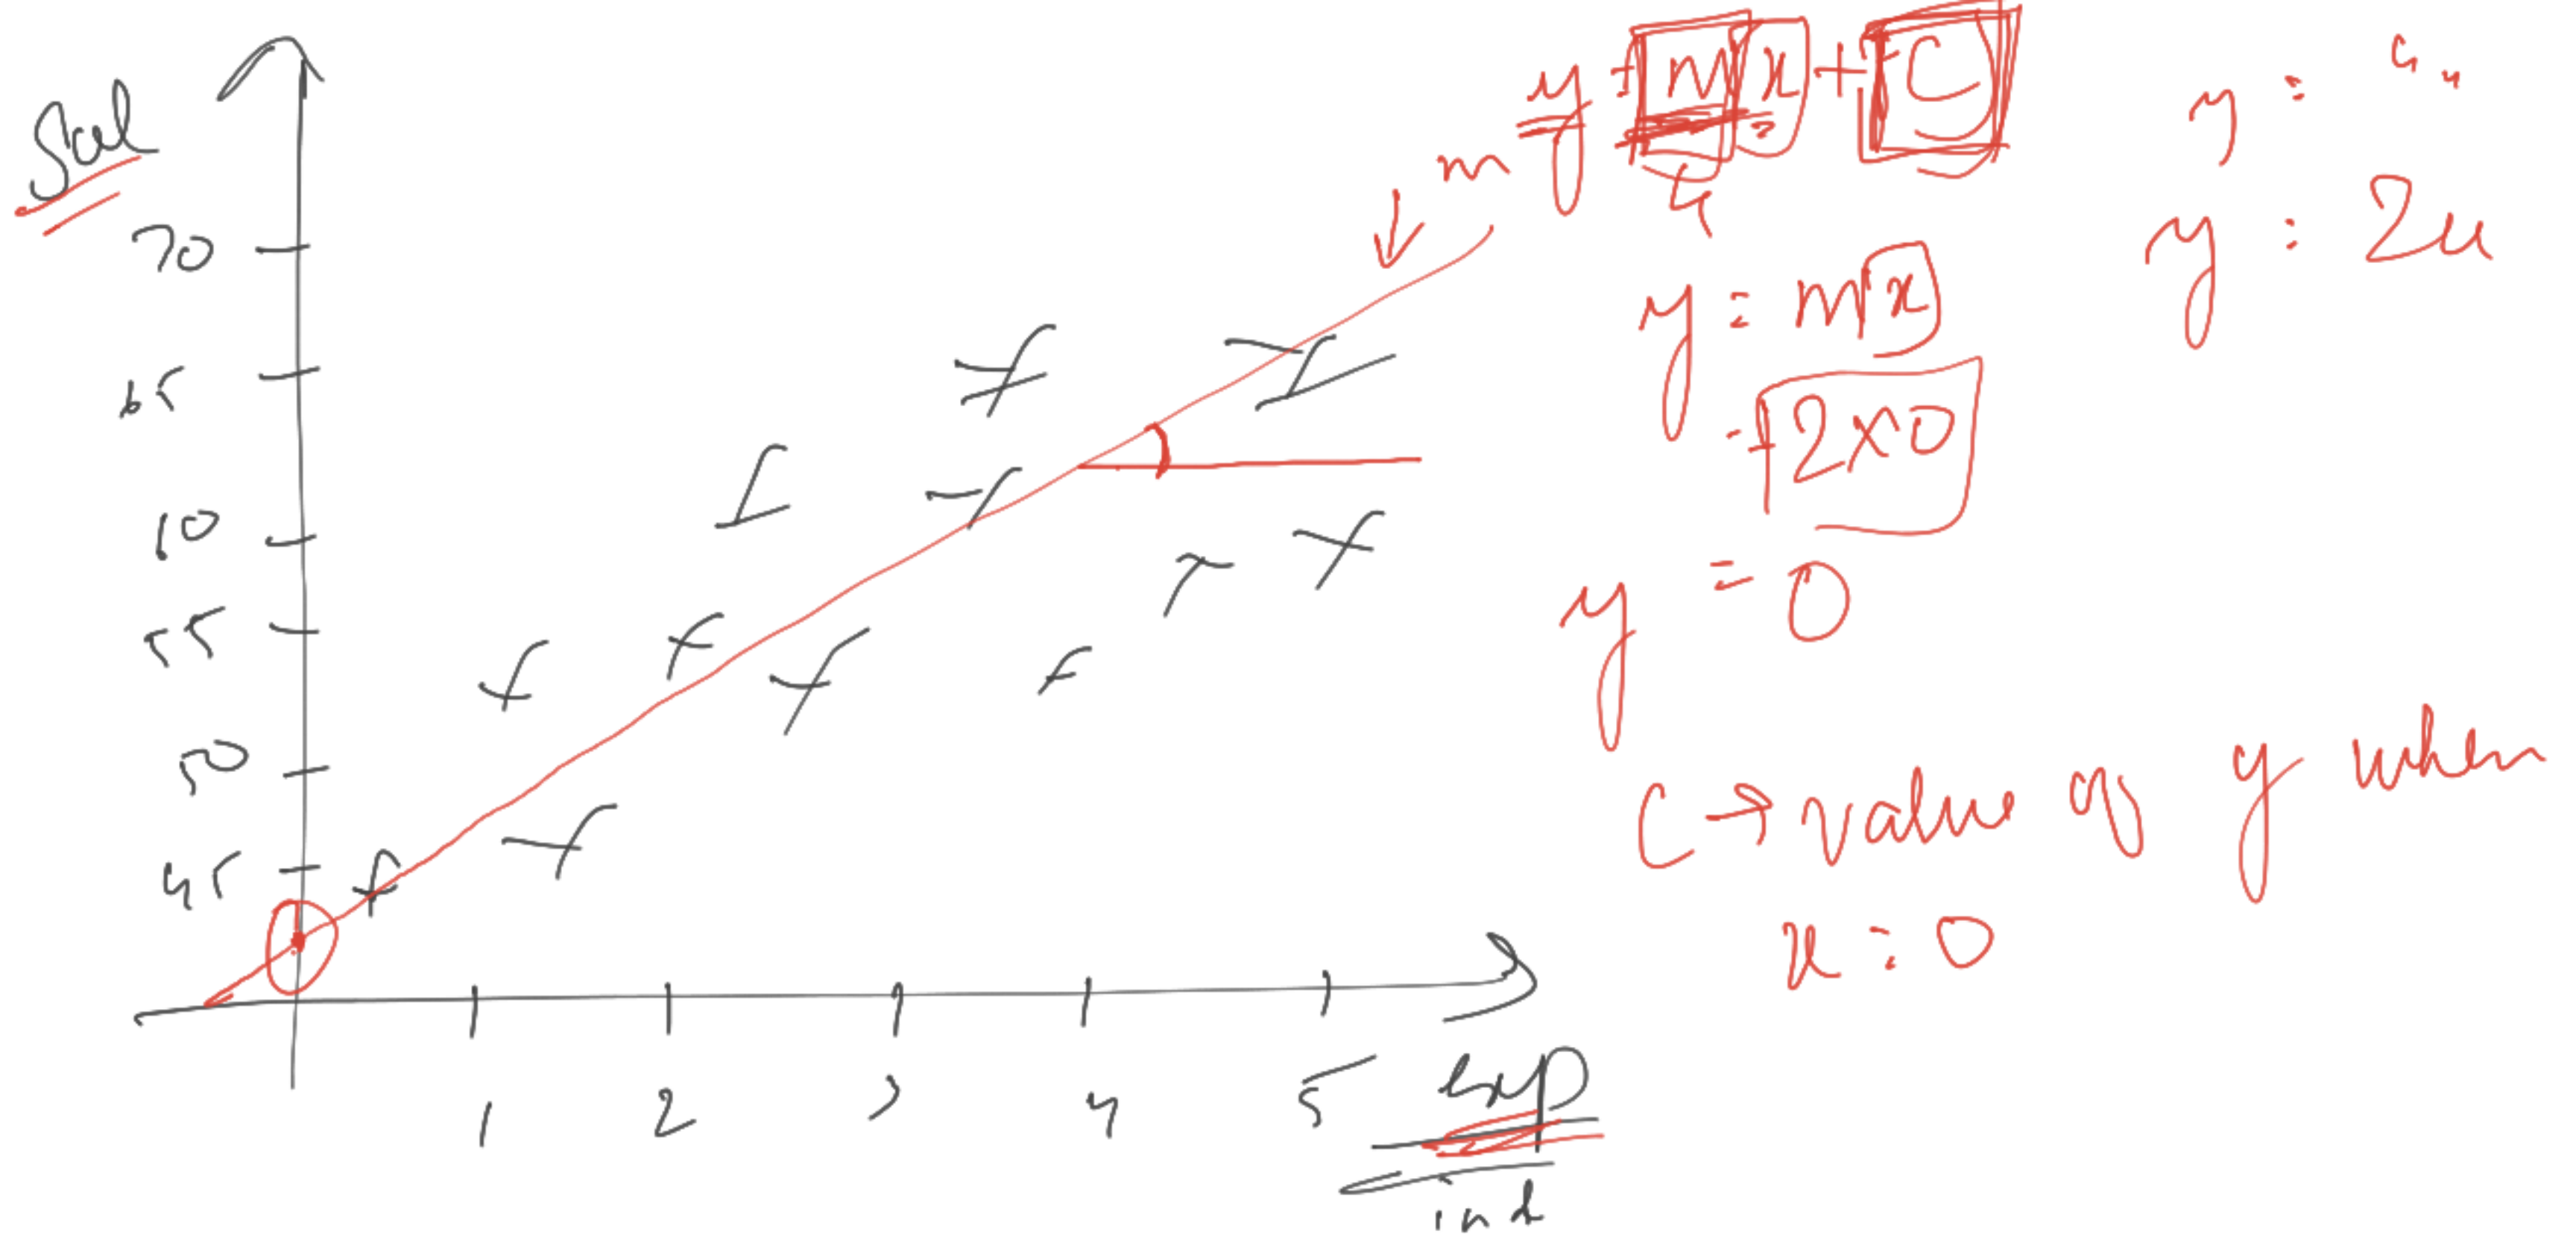 Sal
70
65
60
55
50
45
1 2 3 4 5
exp
ind
y = mx + C
m
4
y = mx
= 2x0
y = 0
C → value of y when
x = 0
y =
y = 2x